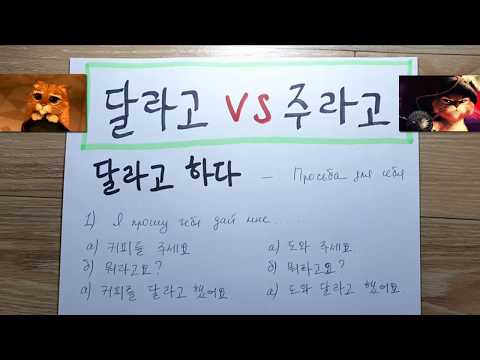 달라고 VS 주라고
달라고 하다 – Просьба для себя
1) Я прошу тебя дай мне.....
а) 커피를 주세요
б) 뭐라고요?
а) 커피를 달라고 했어요
а) 도와 주세요
б) 뭐라고요?
а) 도와 달라고 했어요